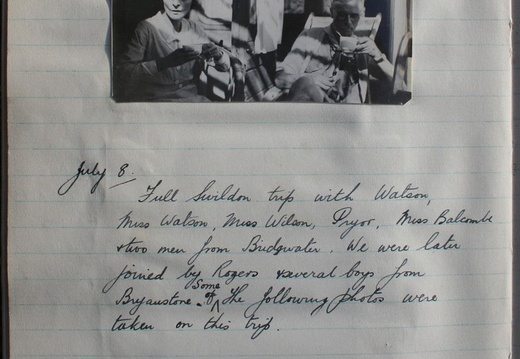 July 8.
Full Swildon trip with Watson,
Miss Watson, Miss Wilson, Pryor, Miss Balcombe
& two men from Bridgwater. We were later
joined by Rogers & several boys from
Bryanstone. Some of the following photos were
taken on this trip.